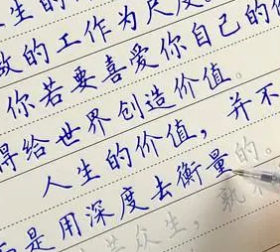 人生的
做的工作为尺度。
你若要喜爱你自己的价
得给世界创造价值。
人生的价值，并不
是用深度去衡量的。
众生，